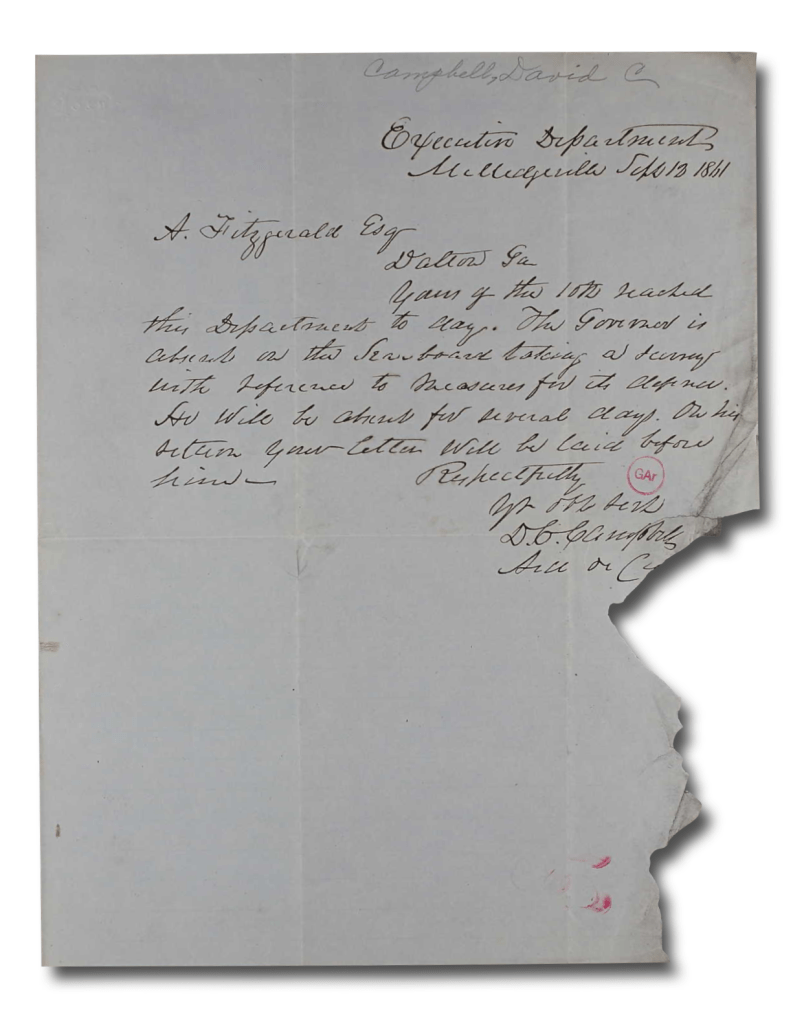 Campbell, David C
Executive Department
Milledgeville Sept 13 1861
A. Fitzgerald Esq
Dalton Ga
Yours of the 10th reached
this Department to day. The Governor is
absent on the Seaboard taking a survey
with reference to measures for its defence.
He will be absent for several days. On his
return your letter will be laid before
him
Respectfully
GAr
Yr Obt Sert
D. C. Campbell